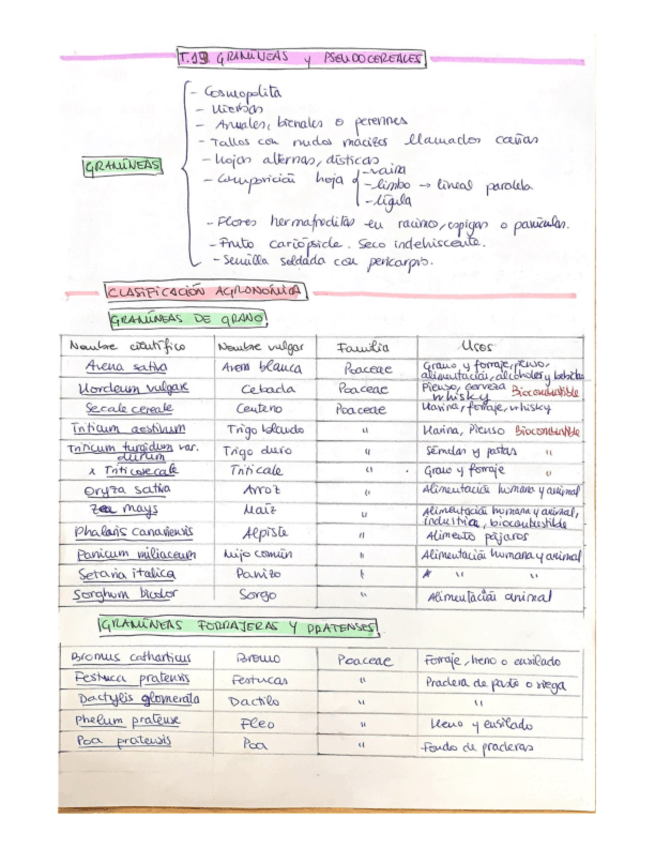 T.19 GRAMÍNEAS y PSEUDOCEREALES
GRAMÍNEAS
- Cosmopolita
- Hierbas
- Anuales, bienales o perennes
- Tallos con nudos macizos llamados cañas
- Hojas alternas, dísticas
- Composición hoja
- vaina
- limbo → lineal paralela
- lígula
- Flores hermafroditas en racimo, espigas o panículas.
- Fruto cariópside. Seco indehiscente.
- Semilla soldada con pericarpio.
CLASIFICACIÓN AGRONÓMICA
GRAMÍNEAS DE GRANO
Nombre científico Nombre vulgar Familia Usos
Avena sativa Avena blanca Poaceae Grano y forraje, pienso, alimentación, alcoholes y bebidas
Hordeum vulgare Cebada Poaceae Pienso, cerveza whisky Biocombustible
Secale cereale Centeno Poaceae Harina, forraje, whisky
Triticum aestivum Trigo blando " Harina, Pienso Biocombustible
Triticum turgidum var. durum Trigo duro " Sémolas y pastas "
x Triticosecale Triticale " Grano y forraje "
Oryza sativa Arroz " Alimentación humana y animal
Zea mays Maíz " Alimentación humana y animal, industria, biocombustible
Phalaris canariensis Alpiste " Alimento pájaros
Panicum miliaceum Mijo común " Alimentación humana y animal
Setaria italica Panizo " " "
Sorghum bicolor Sorgo " Alimentación animal
GRAMÍNEAS FORRAJERAS Y PRATENSES
Bromus catharticus Bromo Poaceae Forraje, heno o ensilado
Festuca pratensis Festucas " Pradera de pasto o siega
Dactylis glomerata Dactilo " "
Phelum pratense Fleo " Heno y ensilado
Poa pratensis Poa " Fondo de praderas